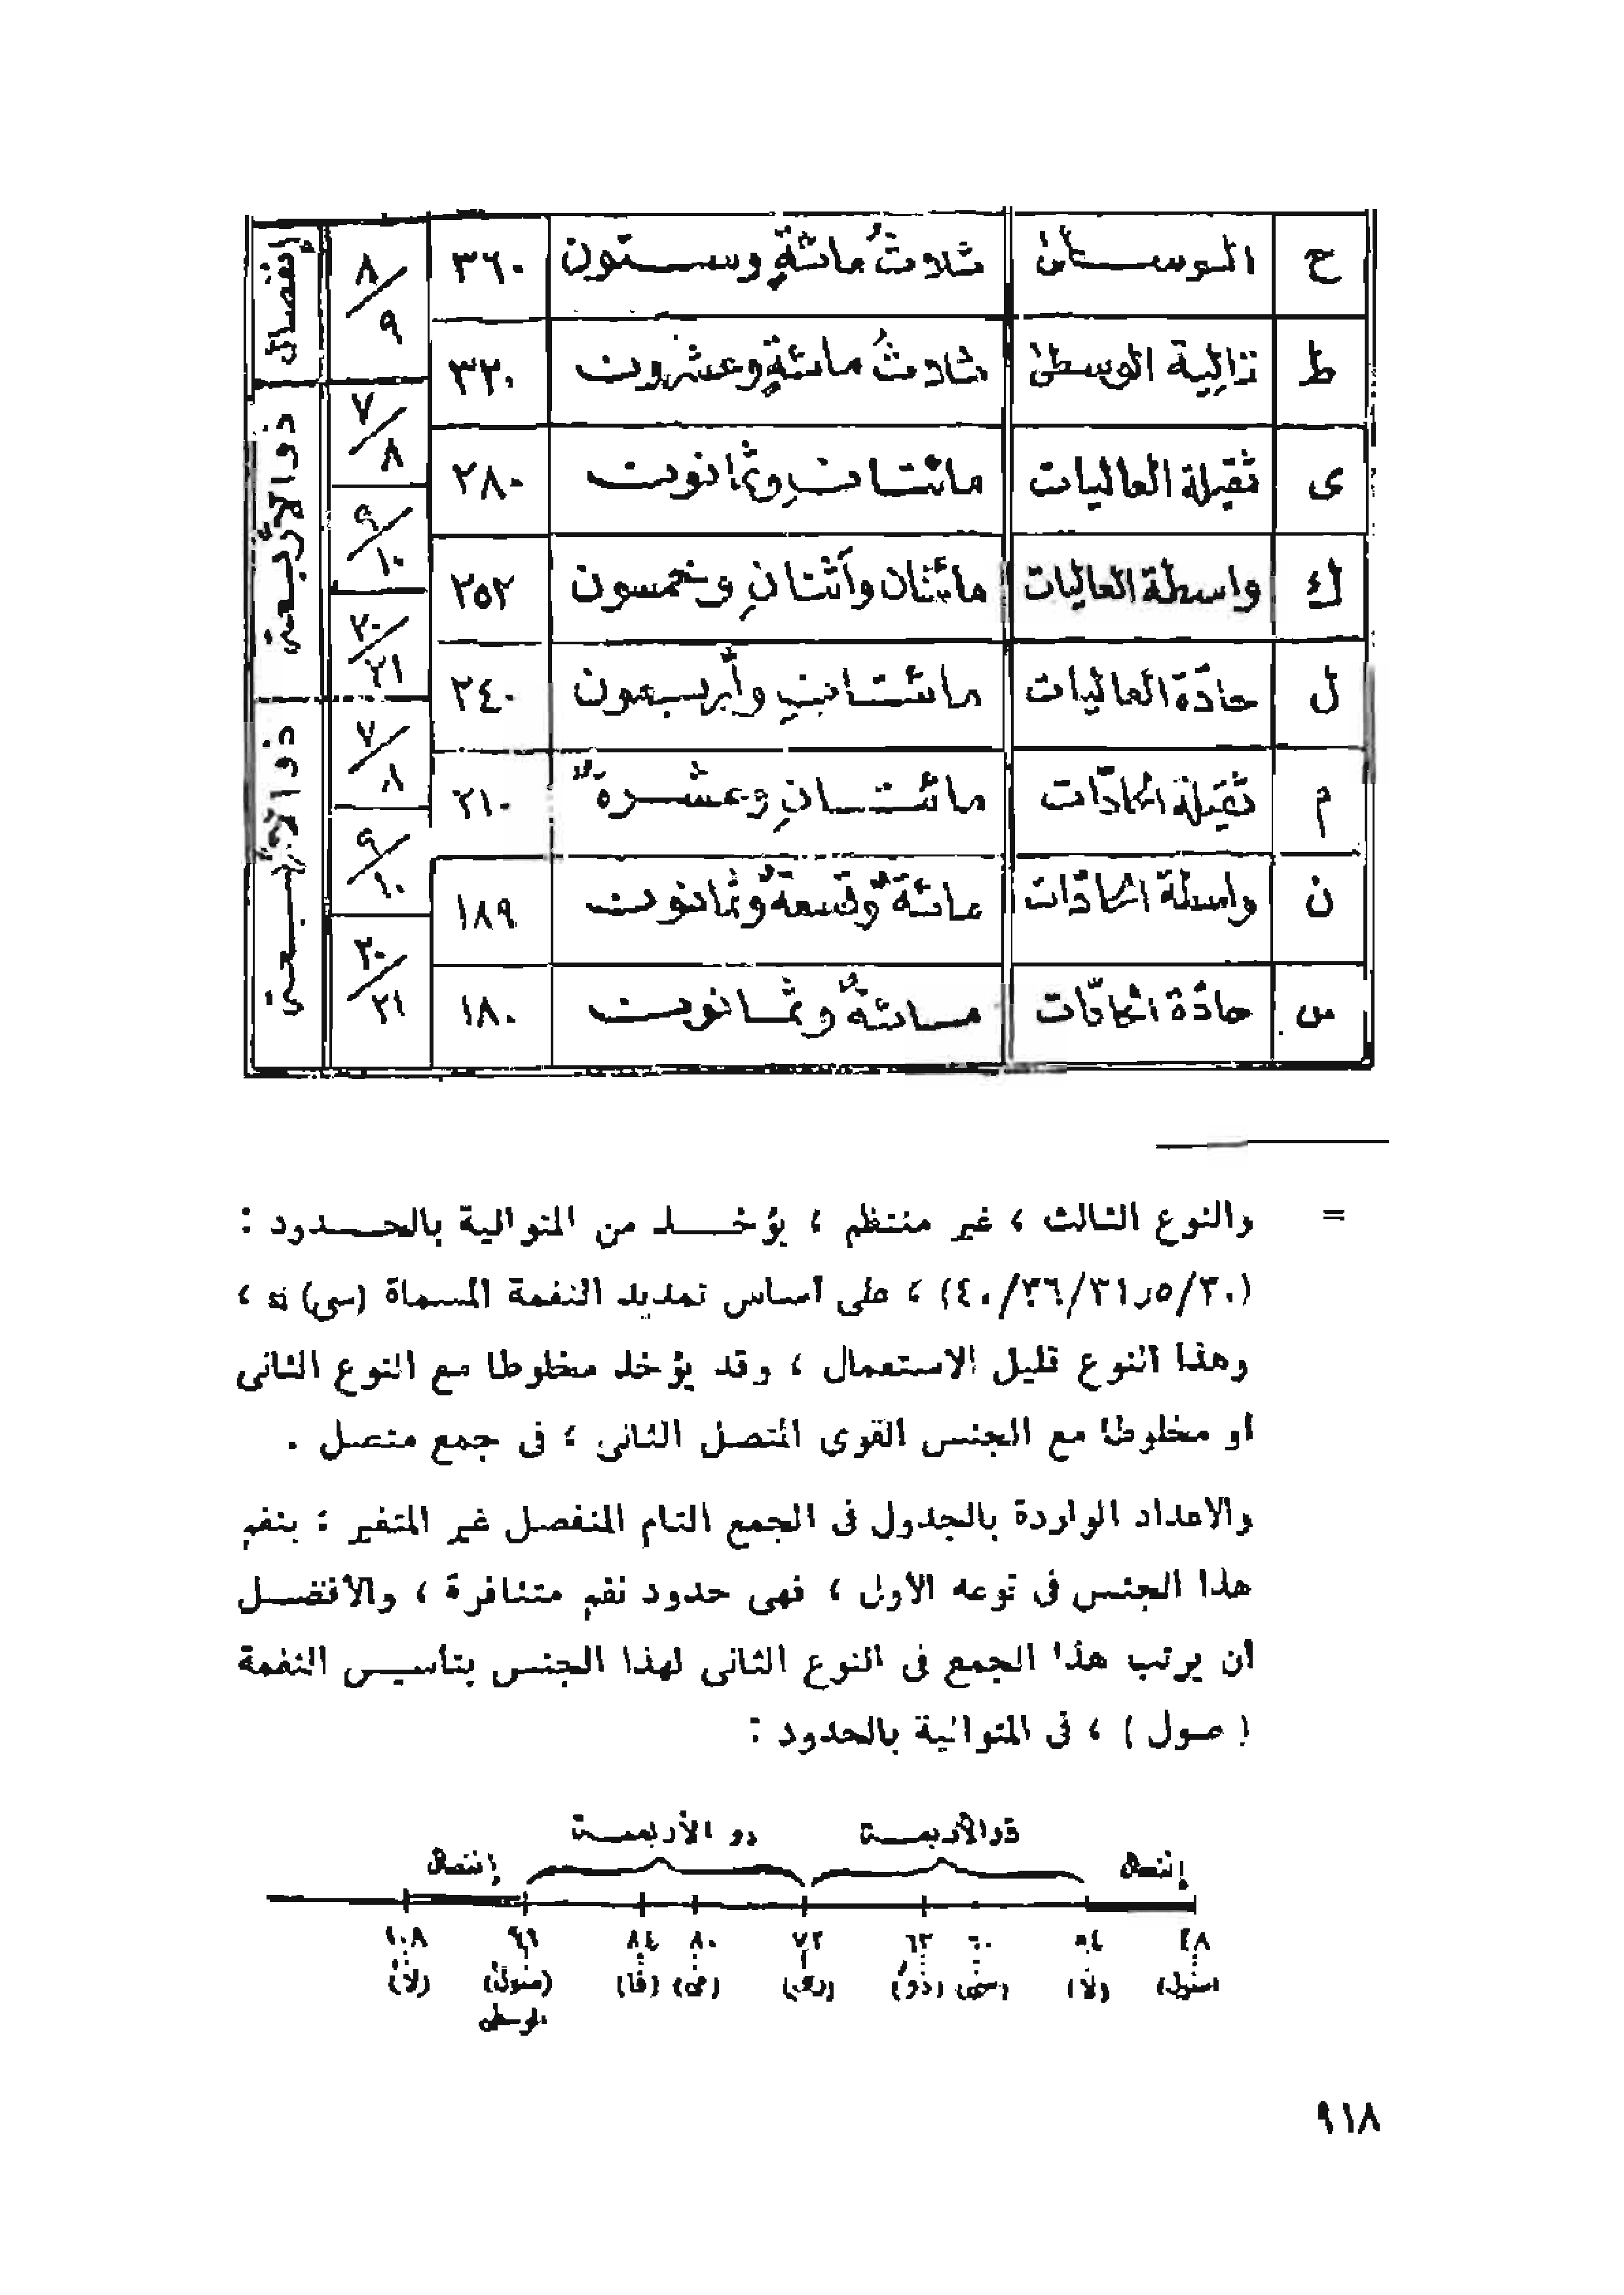 ح الوسطى ثلاثُ مائةٍ وستون ٣٦٠ ٨/٩ إنفصال
ط تالية الوسطى ثلاثُ مائةٍ وعشرون ٣٢٠
ى ثقيلة العاليات مائتانِ وثمانون ٢٨٠ ٧/٨ ذو الأربعة
ك واسطة العاليات مائتان وآثنانِ وخمسون ٢٥٢ ٩/١٠
ل حادّة العاليات مائتانِ وأربعون ٢٤٠ ٢٠/٢١
م ثقيلة الحادّات مائتانِ وعشرةٌ ٢١٠ ٧/٨ ذو الأربعة
ن واسطة الحادّات مائةٌ وتسعةٌ وثمانون ١٨٩ ٩/١٠
س حادّة الحادّات مائةٌ وثمانون ١٨٠ ٢٠/٢١
= والنوع الثالث ، غير منتظم ، يؤخذ من المتوالية بالحدود :
(٣٠/٣١٫٥/٣٦/٤٠) ، على أساس تمديد النغمة المسماة (سى) ،
وهذا النوع قليل الاستعمال ، وقد يؤخذ مخلوطا مع النوع الثانى
أو مخلوطا مع الجنس القوى المتصل الثانى ، فى جمع متصل .
والاعداد الواردة بالجدول فى الجمع التام المنفصل غير المتغير ، بنغم
هذا الجنس فى نوعه الأول ، فهى حدود نغم متنافرة ، والأفضل
أن يرتب هذا الجمع فى النوع الثانى لهذا الجنس بتأسيس النغمة
( صول ) ، فى المتوالية بالحدود :
ذو الأربعة ذو الأربعة
إنفصال إنفصال
٤٨ ٥٤ ٦٠ ٦٣ ٧٢ ٨٠ ٨٤ ٩٦ ١٠٨
(صول) (لا) (سى) (دو) (رى) (مى) (فا) (صول) (لا)
الوسطى
٩١٨